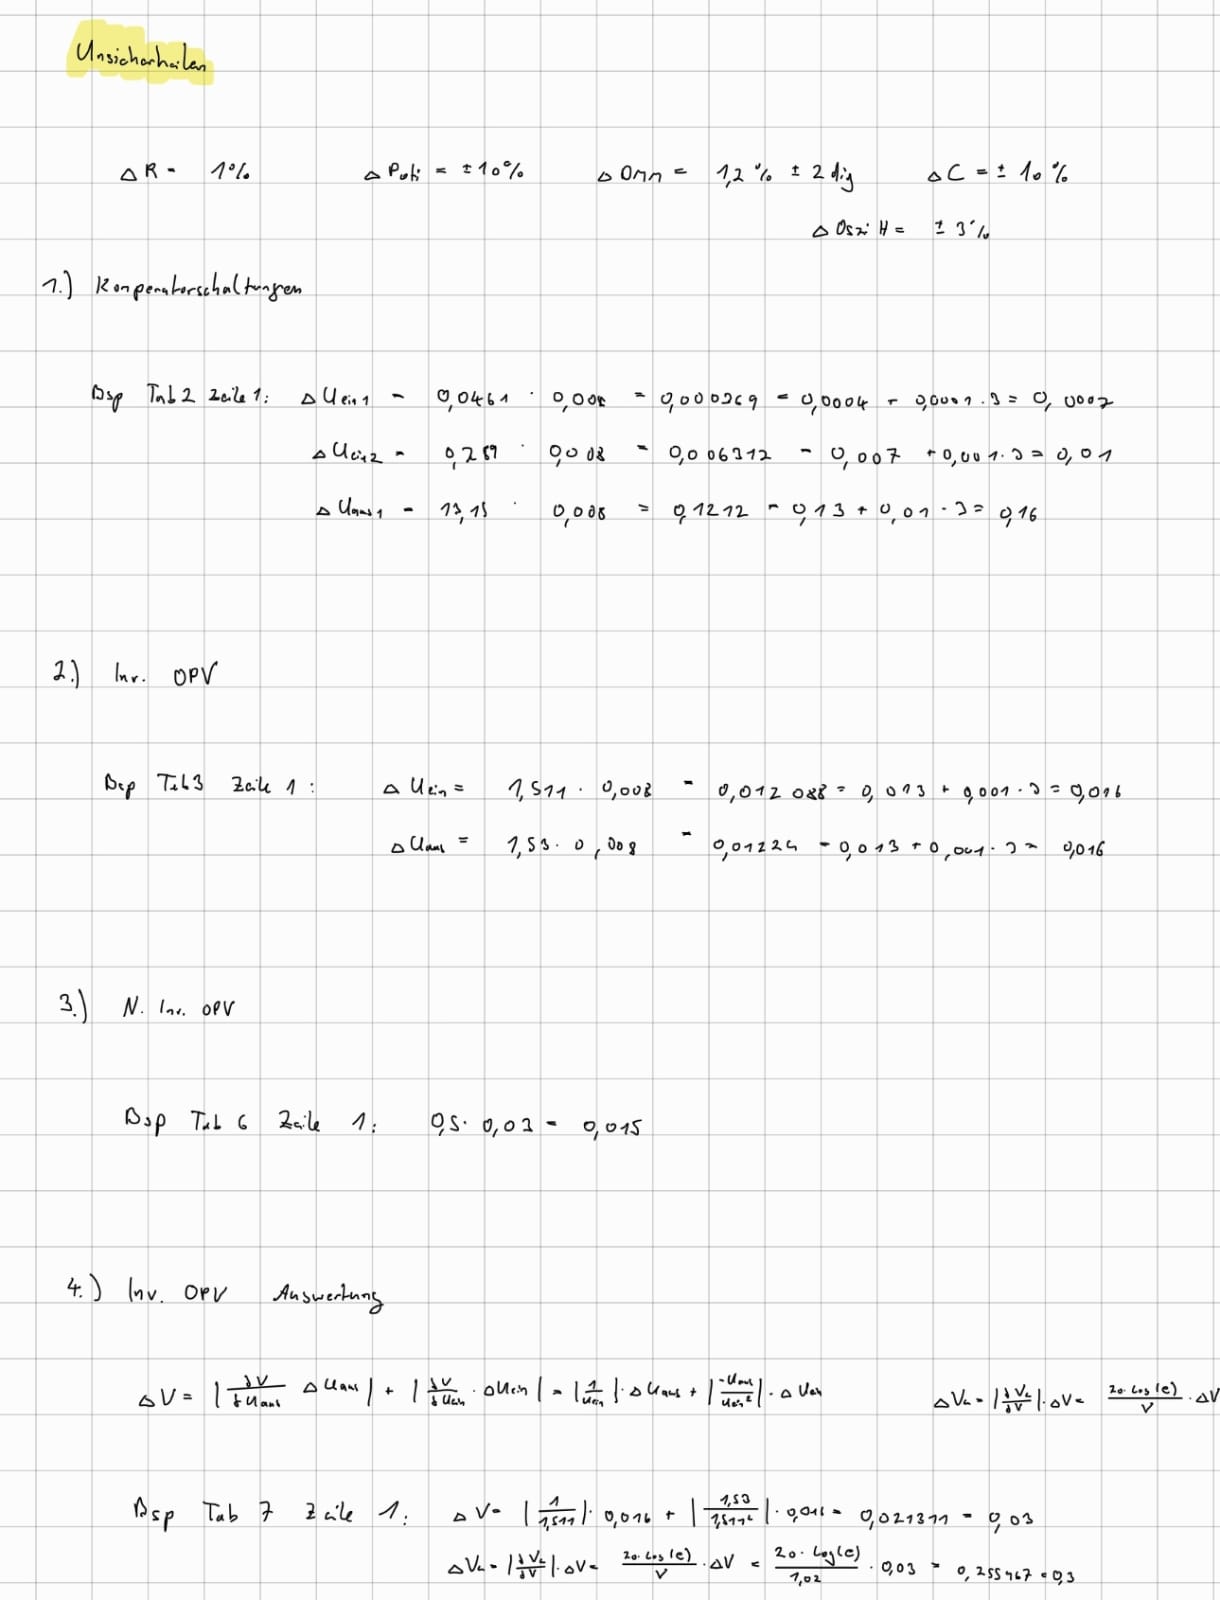 Unsicherheiten
ΔR = 1% ΔPoti = ±10% ΔDMM = 1,2% ± 2 dig ΔC = ± 10%
ΔOszi H = ± 3%
1.) Komperatorschaltungen
Bsp Tab 2 Zeile 1: ΔUein1 = 0,0461 · 0,008 = 0,000369 = 0,0004 + 0,0001 · 3 = 0,0007
ΔUein2 = 0,789 · 0,008 = 0,006312 = 0,007 + 0,001 · 3 = 0,01
ΔUaus1 = 15,15 · 0,008 = 0,1212 = 0,13 + 0,01 · 3 = 0,16
2.) Inv. OPV
Bsp Tab 3 Zeile 1: ΔUein = 1,511 · 0,008 = 0,012088 = 0,013 + 0,001 · 3 = 0,016
ΔUaus = 1,53 · 0,008 = 0,01224 = 0,013 + 0,001 · 3 = 0,016
3.) N. Inv. OPV
Bsp Tab 6 Zeile 1: 0,5 · 0,03 = 0,015
4.) Inv. OPV Auswertung
ΔV = |δV/δUaus ΔUaus| + |δV/δUein · ΔUein| = |1/Uein| · ΔUaus + |-Uaus/Uein²| · ΔUein ΔVu = |δVu/δV| · ΔV = 20·log(e)/V · ΔV
Bsp Tab 7 Zeile 1: ΔV = |1/1,511| · 0,016 + |1,53/1,511²| · 0,016 = 0,021311 = 0,03
ΔVu = |δVu/δV| · ΔV = 20·log(e)/V · ΔV = 20·log(e)/1,02 · 0,03 = 0,255467 = 0,3